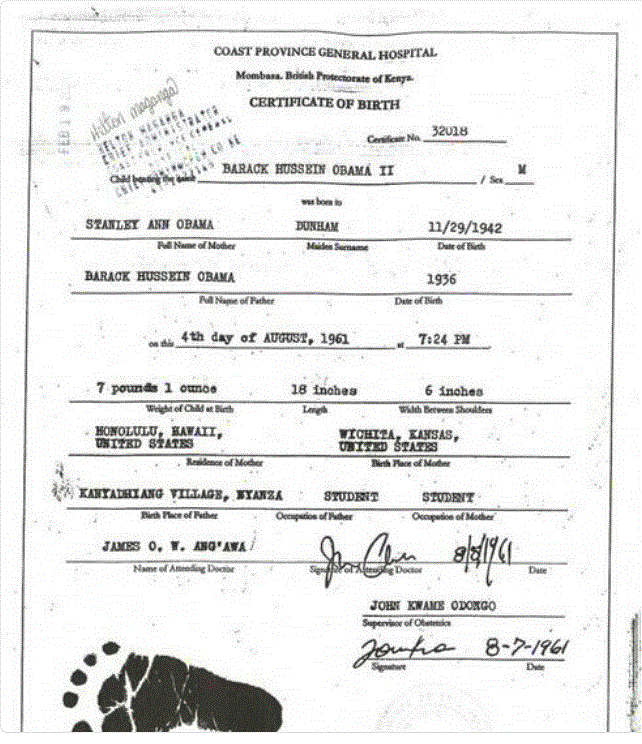 COAST PROVINCE GENERAL HOSPITAL
Mombasa, British Protectorate of Kenya.
CERTIFICATE OF BIRTH
Certificate No. 32018
Child bearing the name BARACK HUSSEIN OBAMA II / Sex M
was born to
STANLEY ANN OBAMA DUNHAM 11/29/1942
Full Name of Mother Maiden Surname Date of Birth
BARACK HUSSEIN OBAMA 1936
Full Name of Father Date of Birth
on this 4th day of AUGUST, 1961 at 7:24 PM
7 pounds 1 ounce 18 inches 6 inches
Weight of Child at Birth Length Width Between Shoulders
HONOLULU, HAWAII, WICHITA, KANSAS,
UNITED STATES UNITED STATES
Residence of Mother Birth Place of Mother
KANYADHIANG VILLAGE, NYANZA STUDENT STUDENT
Birth Place of Father Occupation of Father Occupation of Mother
JAMES O. W. ANG'AWA 8/8/1961
Name of Attending Doctor Signature of Attending Doctor Date
JOHN KWAME ODONGO
Supervisor of Obstetrics
8-7-1961
Signature Date